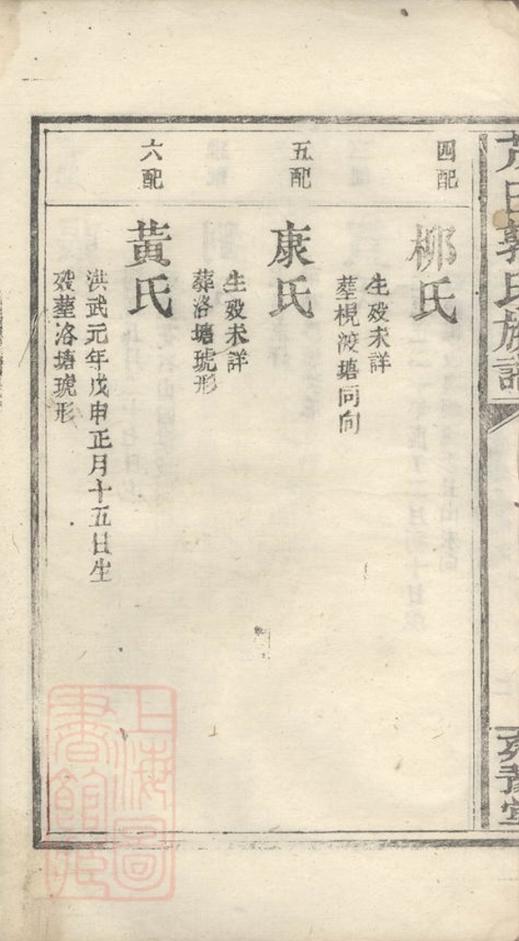 郭氏族譜
四配
柳氏
生歿未詳
塟梘渡塘同向
五配
康氏
生歿未詳
葬洛塘琥形
六配
黃氏
洪武元年戊申正月十五日生
歿塟洛塘琥形
上海圖
書館藏